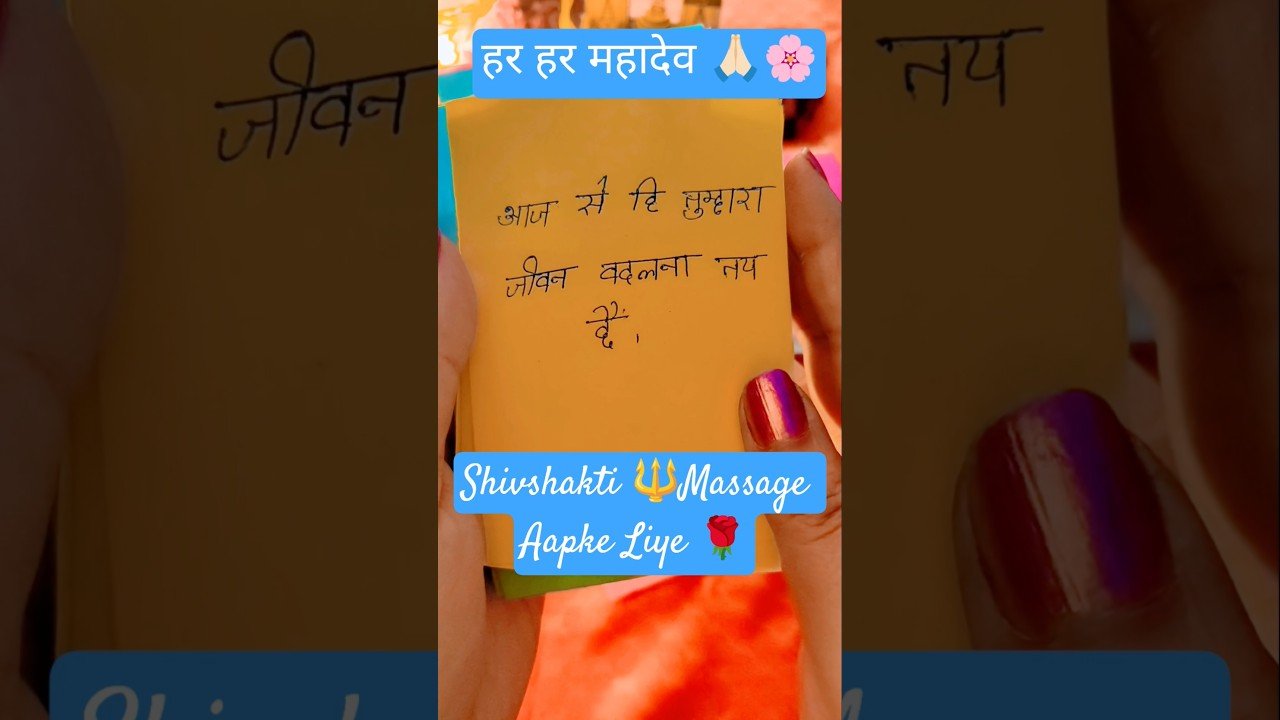 हर हर महादेव 🙏🏻🌸
आज से हि तुम्हारा
जीवन बदलना तय
हैं.
Shivshakti 🔱Massage
Aapke Liye 🌹
जीवन
तय